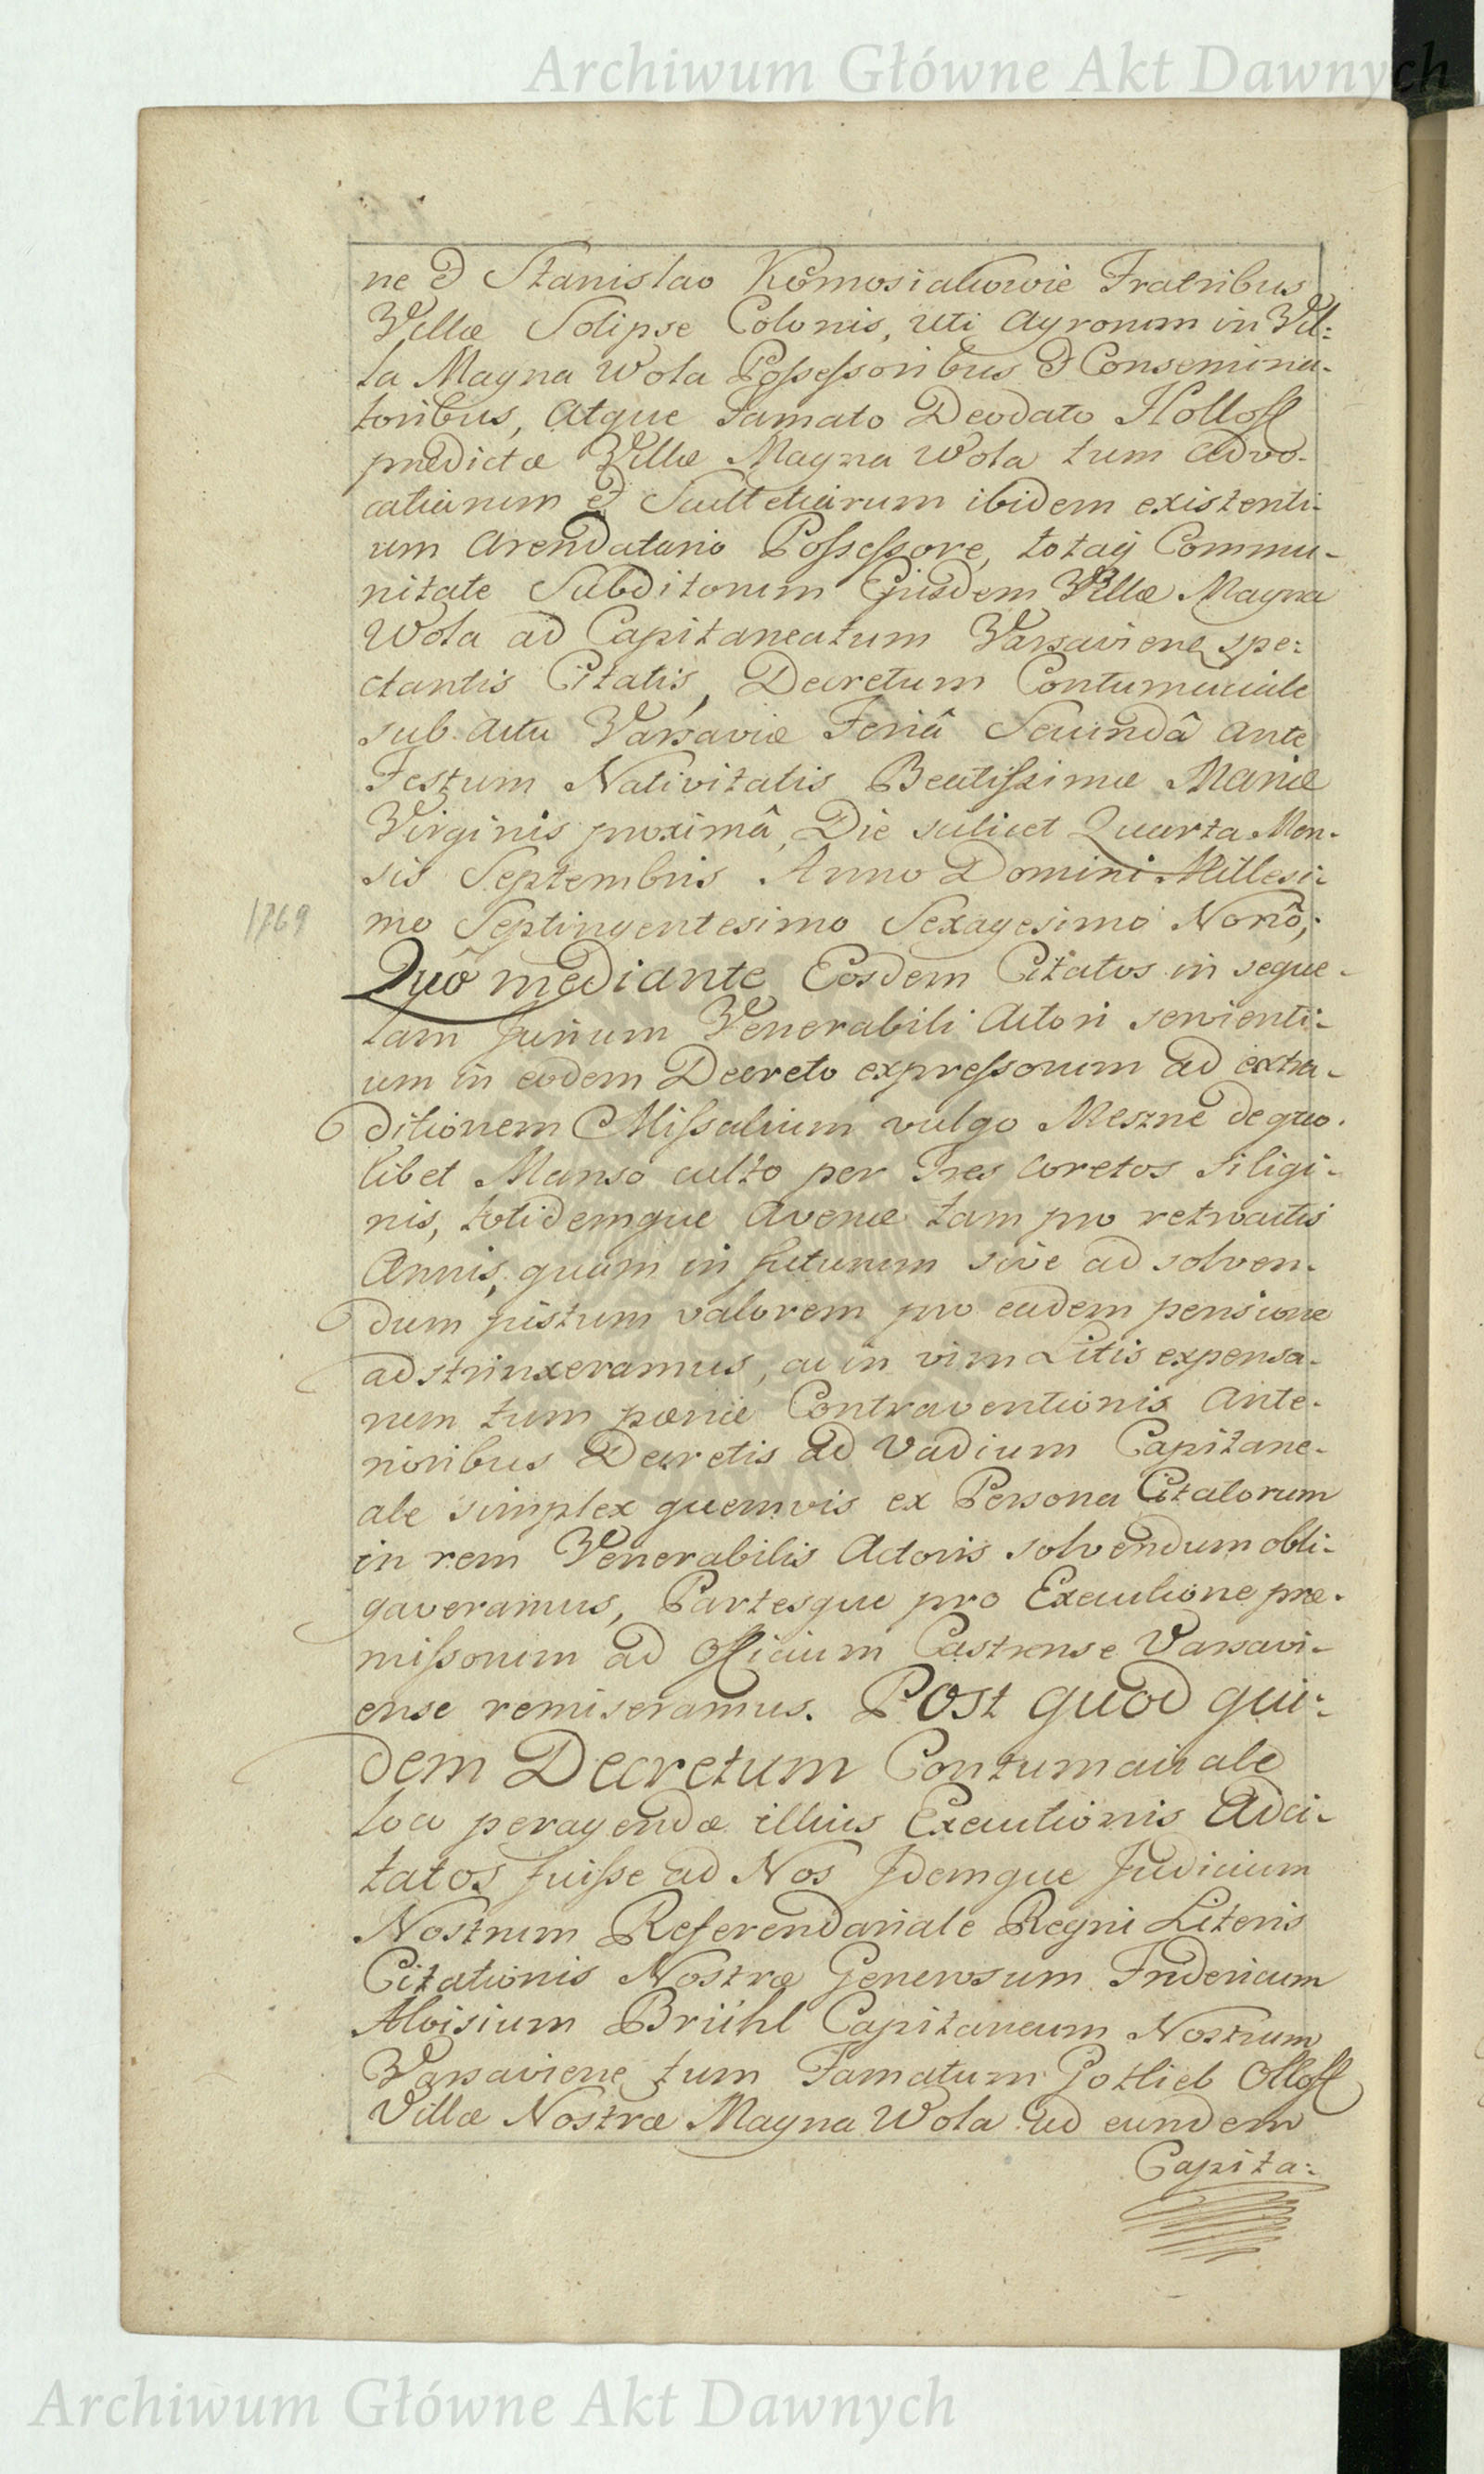 Archiwum Główne Akt Dawnych
ne & Stanislao Komosiakowie Fratribus
Villæ Solipse Colonis, uti Agrorum in Vil:
la Magna Wola Possessoribus & Consemina-
toribus, Atque Famato Deodato Holloff
prædictæ Villæ Magna Wola tum Advo-
catiarum & Scultetiarum ibidem existenti-
um Arendatario Possessore, totaq Commu-
nitate Subditorum Ejusdem Villæ Magna
Wola ad Capitaneatum Varsaviene spe:
ctantis Citatis, Decretum Contumaciale
sub Actu Varsaviæ Feriâ Secundâ ante
Festum Nativitatis Beatissimæ Mariæ
Virginis proximâ, Die scilicet Quarta Men-
sis Septembris Anno Domini Millesi-
1769
mo Septingentesimo Sexagesimo Nonô;
Quô mediante Eosdem Citatos in seque-
lam Jurium Venerabili Actori servienti-
um in eodem Decreto expressorum ad extra-
ditionem Missalium vulgo Meszne de quo-
libet Manso culto per Tres Coretos siligi-
nis, totidemque Avenæ tam pro retroactis
Annis, quam in futurum sive ad solven-
dum justum valorem pro eadem pensione
adstrinxeramus, ac in vim Litis expensa-
rum tum pænæ Contraventionis Ante-
rioribus Decretis ad Vadium Capitane-
ale simplex quemvis ex Persona Citatorum
in rem Venerabilis Actoris solvendum obli-
gaveramus, Partesque pro Executione præ-
missorum ad Officium Castrense Varsavi-
ense remiseramus. Post quod qui:
dem Decretum Contumaciale
loco peragendæ illius Executionis Adci-
tatos fuisse ad Nos Idemque Judicium
Nostrum Referendariale Regni Literis
Citationis Nostræ Generosum Fridericum
Aloisium Brühl Capitaneum Nostrum
Varsaviene tum Famatum Gotlieb Olloff
Villæ Nostræ Magna Wola ad eundem
Capita:
Archiwum Główne Akt Dawnych